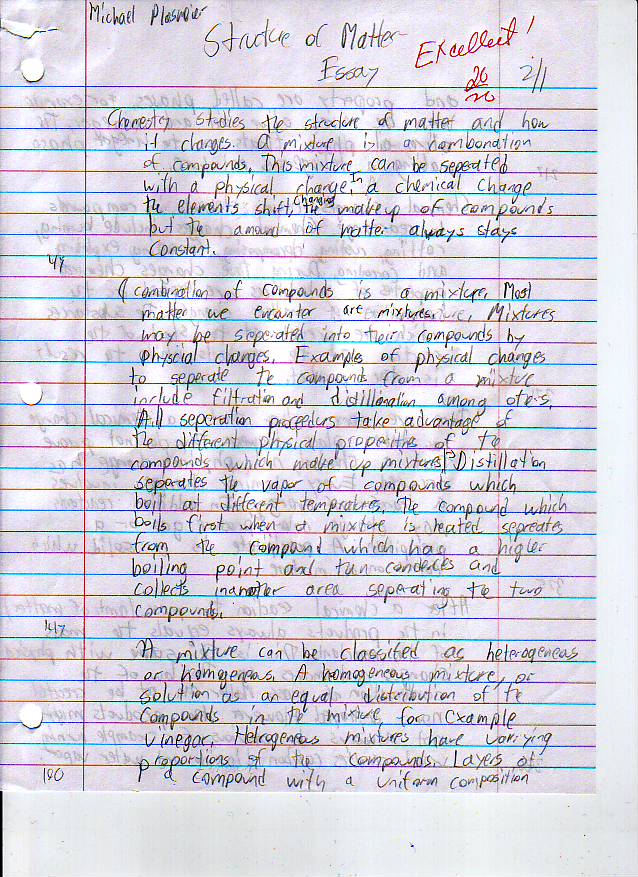 Michael Plasmeier
Structure of Matter
Excellent!
Essay
20/20
2/1
Chemestry studies the structure of matter and how
it changes. A mixture is a hombonation
of compounds. This mixture can be seperated
with a physical change. In a chemical change
the elements shift, changing the makeup of compounds
but the amount of matter always stays
constant.
44
A combination of compounds is a mixture. Most
matter we encounter are mixtures. Mixtures
may be seperated into their compounds by
physcial changes. Examples of physical changes
to seperate the compounds from a mixture
include filtration and distillenation among others.
All seperation proceedurs take advantage of
the different physical properities of the
compounds which make up mixtures. Distillation
separates the vapor of compounds which
boil at different tempratures. The compound which
boils first when a mixture is heated sepreates
from the compound which has a higher
boiling point and then condences and
collects in another area seperating the two
compounds.
147
A mixture can be classified as heterogeneas
or homogeneas. A homogeneous mixture, or
solution as an equal distribution of the
compounds in the mixture, for example
vinegar. Hetrogeneas mixtures have varying
proportions of the compounds. Layers of
180
a compound with a uniform composition